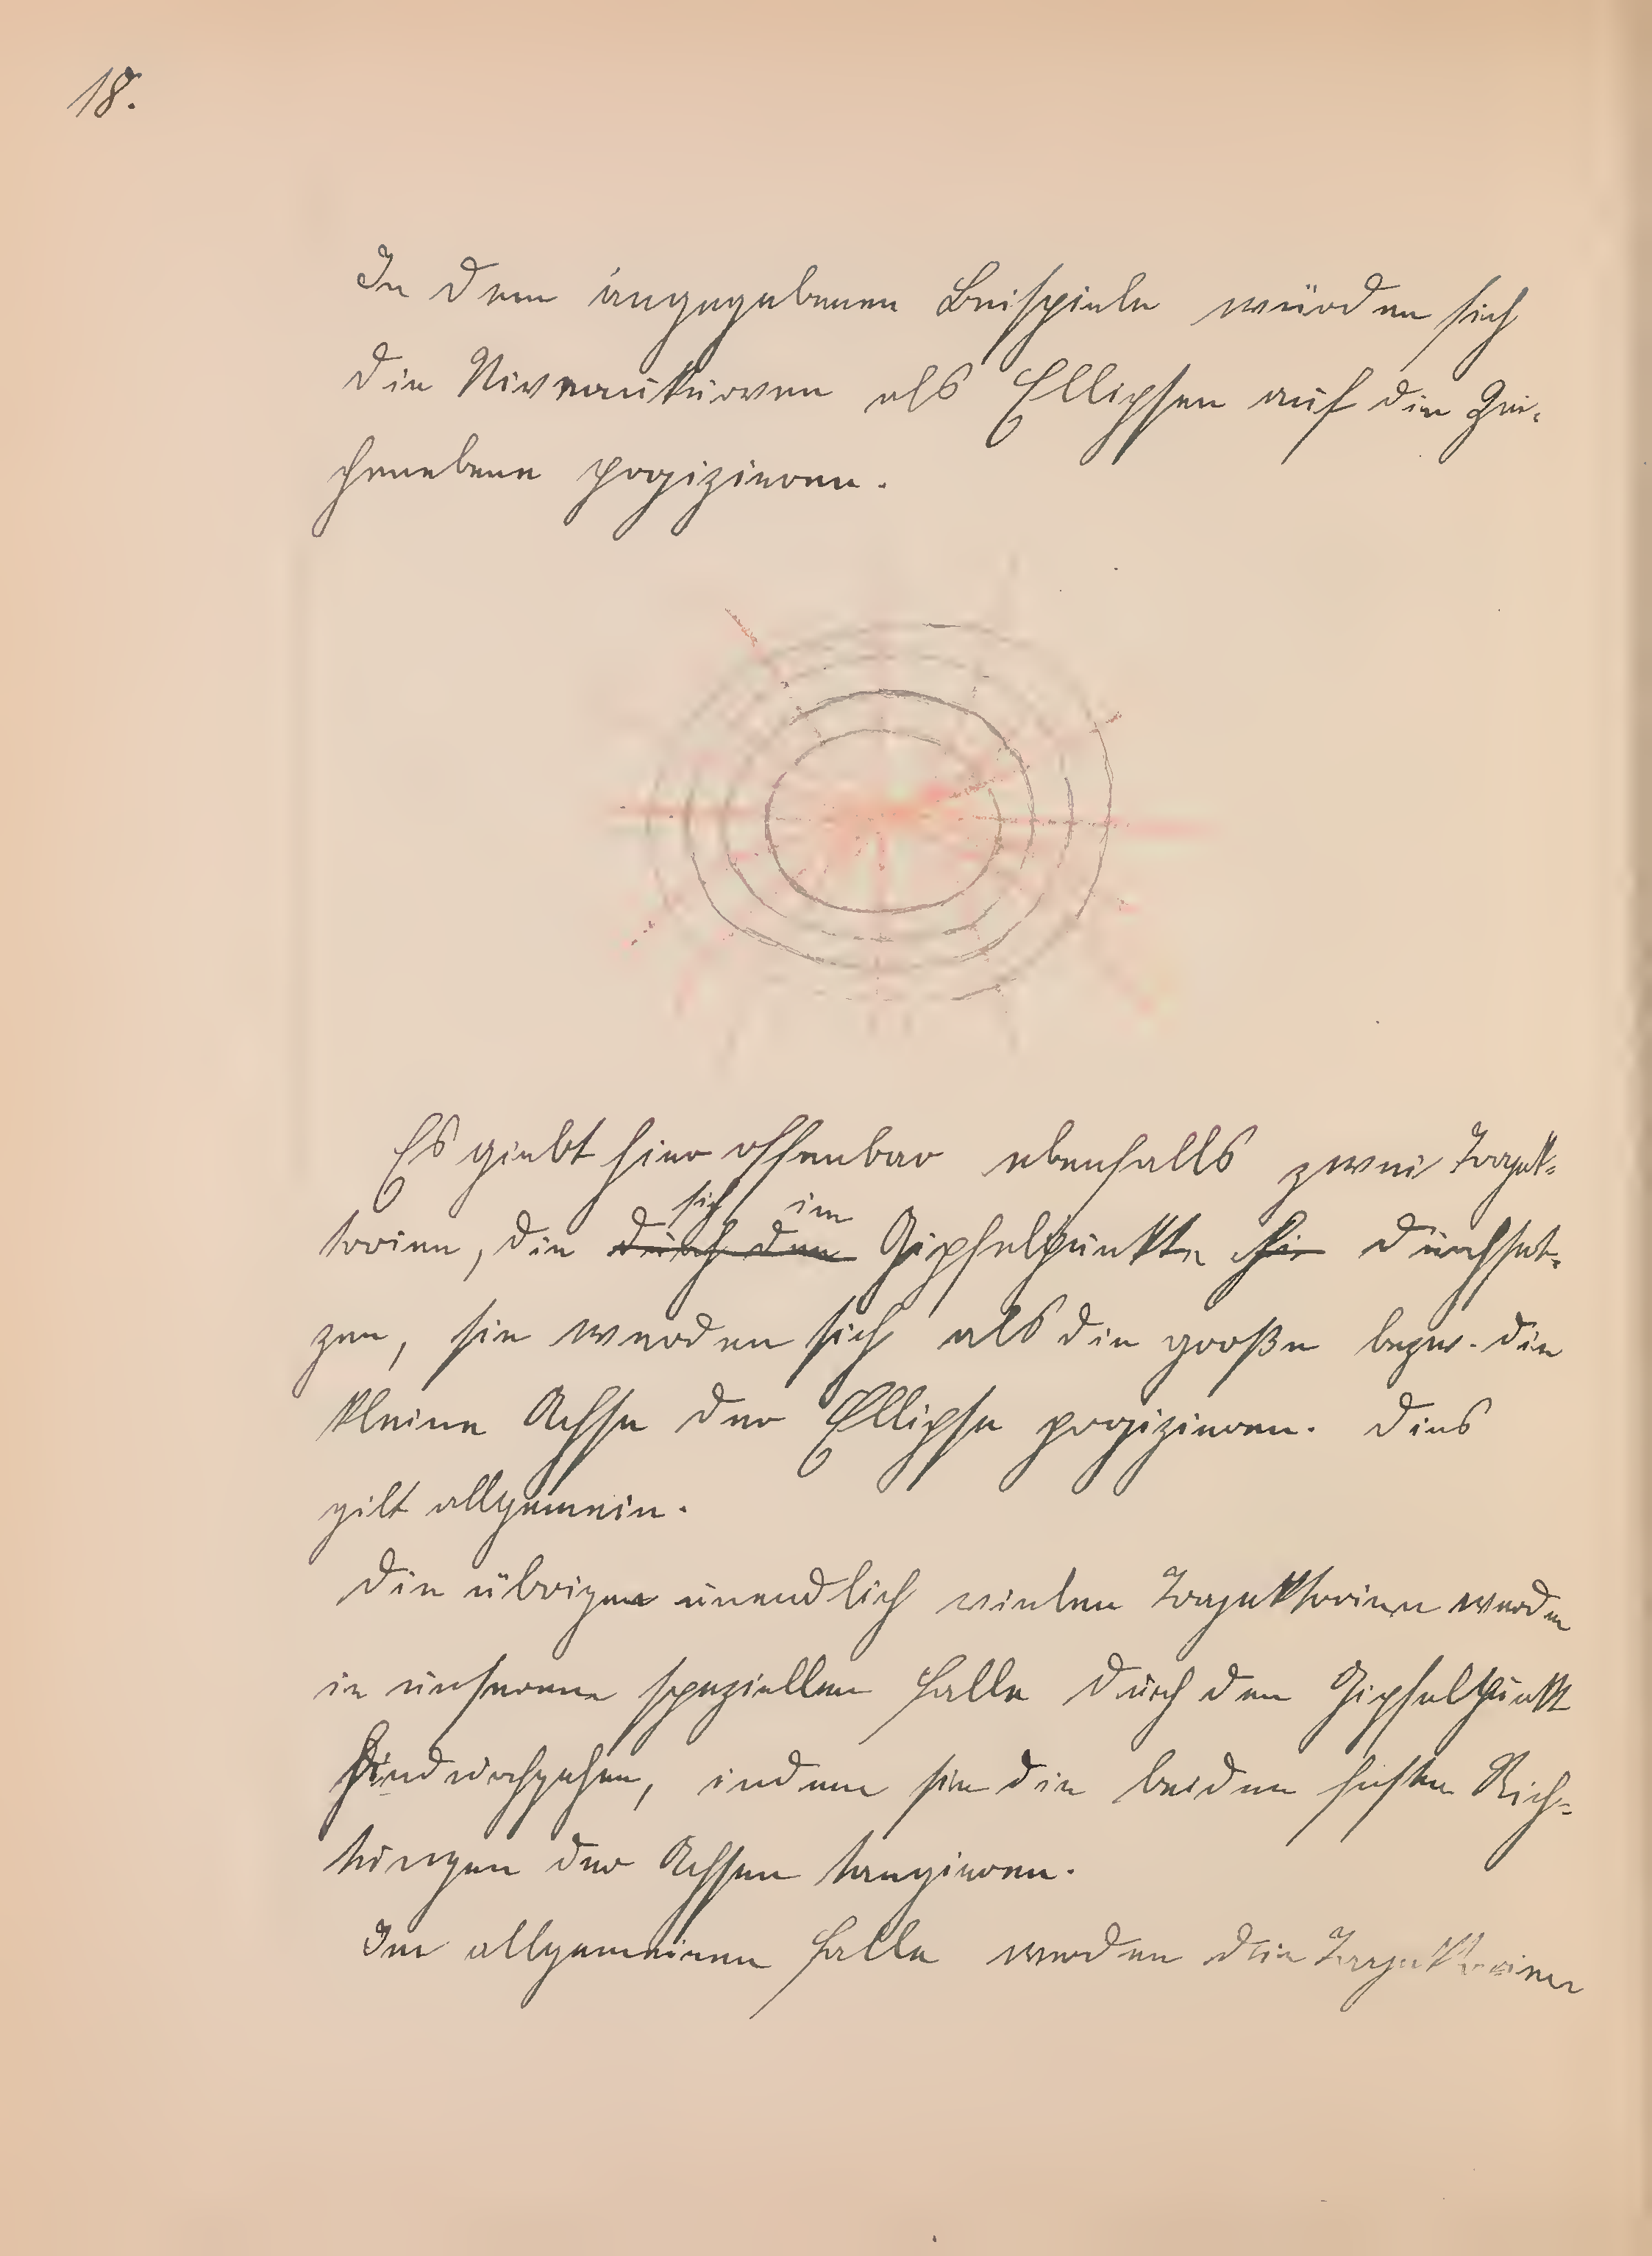 18.
In dem angegebenen Beispiele würden sich
die Niveaukurven als Ellipsen auf die Zei-
chenebene projizieren.
Es giebt hier offenbar ebenfalls zwei Trajek-
sich im
torien, die durch den Gipfelpunkte hin durchset-
zen, sie werden sich als die große bezw. die
kleine Achse der Ellipse projizieren. Dies
gilt allgemein.
Die übrigen unendlich vielen Trajektorien werden
in unserem speziellen Falle durch den Gipfelpunkt
hindurchgehen, indem sie die beiden festen Rich-
tungen der Achsen tangieren.
Im allgemeinen Falle werden die Trajektorien